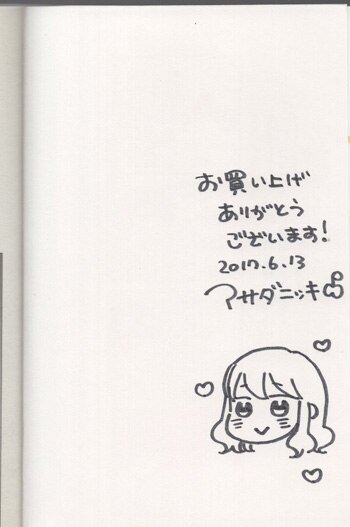 お買い上げ
ありがとう
ございます!
2017.6.13
アサダニッキ